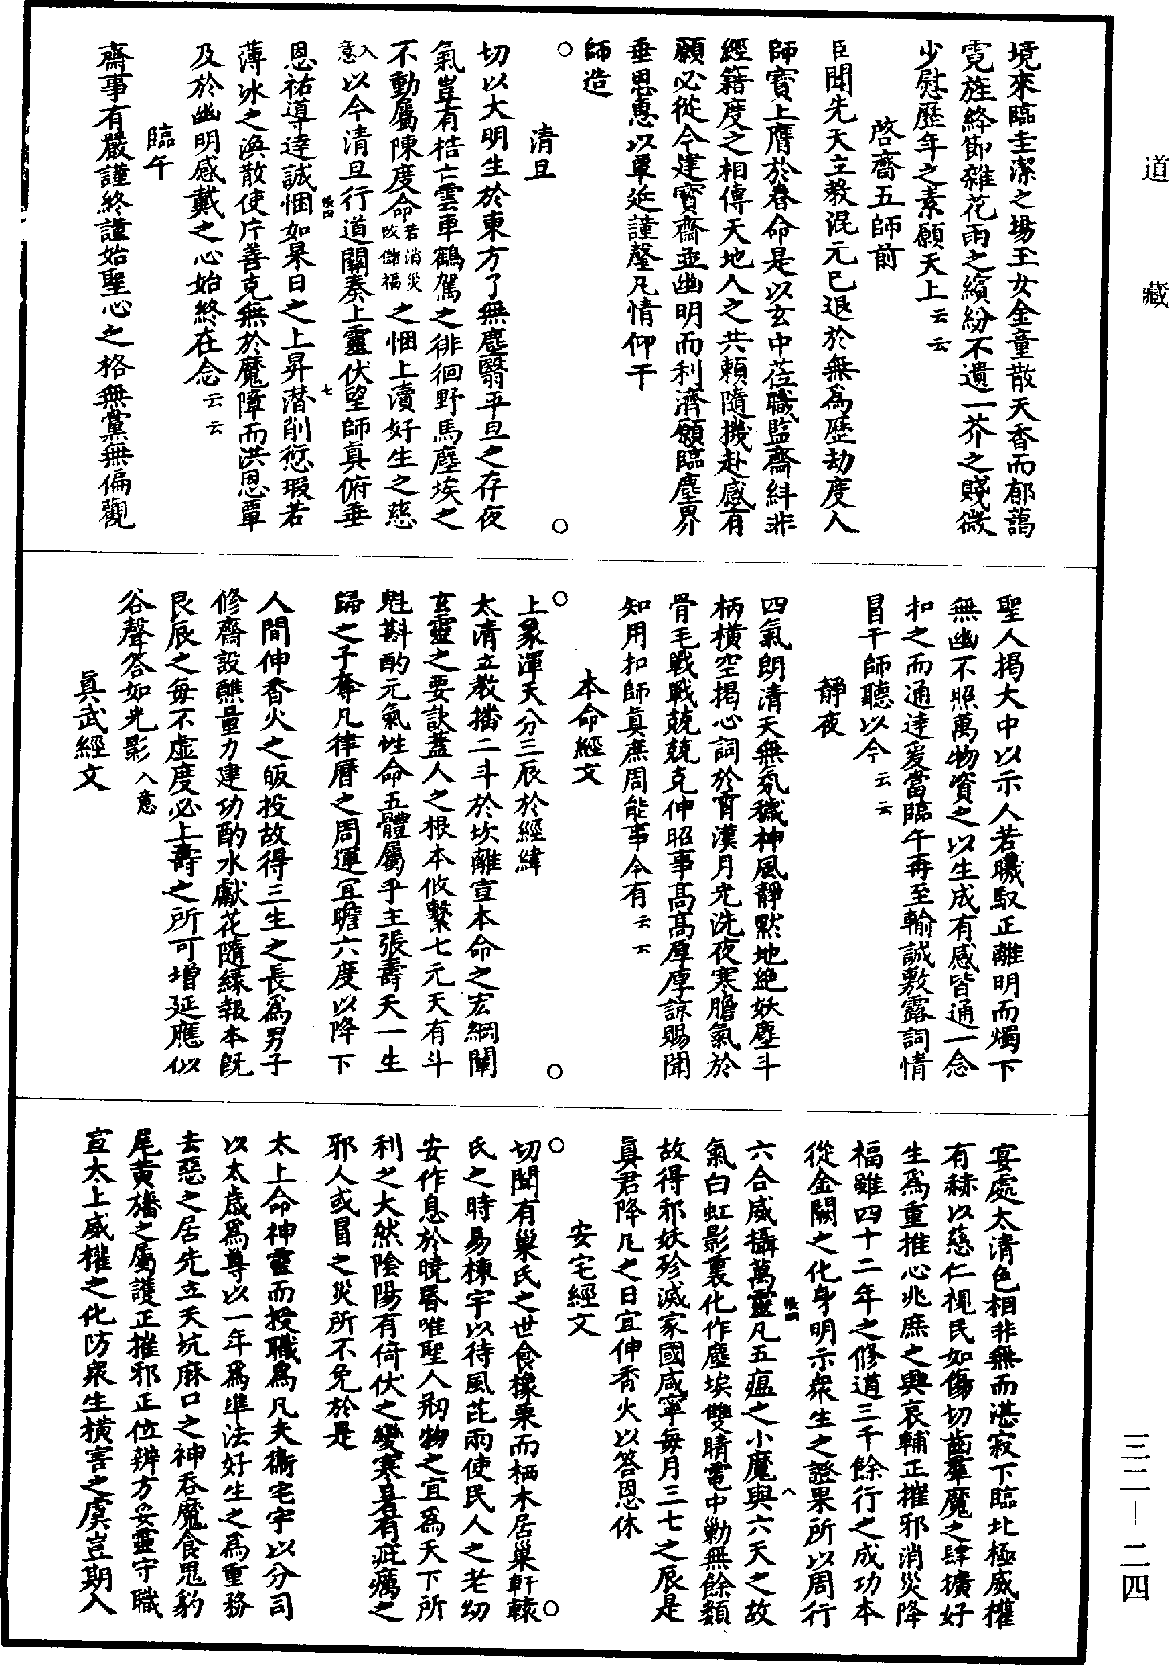 道藏
境來臨圭潔之場玉女金童散天香而郁藹
霓旌絳節雜花雨之繽紛不遺一芥之賤微
少慰歷年之素願天上云云
啓齋五師前
臣聞先天立教混元已退於無爲歷劫度人
師寶上膺於眷命是以玄中莅職監齋糾非
經籍度之相傳天地人之共賴隨機赴感有
願必從今建寶齋亟幽明而利濟願臨塵界
垂恩惠以覃延謹罄凡情仰干
師造
清旦
切以大明生於東方了無塵翳平旦之存夜
氣豈有梏亡雲車鶴駕之徘徊野馬塵埃之
不動屬陳度命若消災改儲福之悃上瀆好生之慈
入意以今清旦行道關奏上靈伏望師真俯垂
恩祐導達誠悃如杲日之上昇潛削愆瑕若
薄冰之渙散使片善克無於魔障而洪恩覃
及於幽明感戴之心始終在念云云
臨午
齋事有嚴謹終謹始聖心之格無黨無偏觀
聖人揭大中以示人若曦馭正離明而燭下
無幽不照萬物資之以生成有感皆通一念
扣之而通達爰當臨午再至輸誠敷露詞情
冒干師聽以今云云
靜夜
四氣朗清天無氛穢神風靜默地絶妖塵斗
柄橫空揭心詞於霄漢月光洗夜寒膽氣於
骨毛戰戰兢兢克伸昭事高高厚厚諒賜聞
知用扣師真庶周能事今有云云
本命經文
上象渾天分三辰於經緯
太清立教播二斗於坎離宣本命之宏綱闡
玄靈之要訣蓋人之根本攸繫七元天有斗
魁斟酌元氣性命五體屬乎主張壽夭一生
歸之予奪凡律曆之周運宜瞻六度以降下
人間伸香火之皈投故得三生之長爲男子
修齋設醮量力建功酌水獻花隨緣報本旣
艮辰之每不虛度必上壽之所可增延應似
谷聲答如光影入意
真武經文
宴處太清色相非無而湛寂下臨北極威權
有赫以慈仁視民如傷切齒羣魔之肆擴好
生爲重推心兆庶之興哀輔正摧邪消災降
福雖四十二年之修道三千餘行之成功本
從金闕之化身明示衆生之證果所以周行
六合威攝萬靈凡五瘟之小魔與六天之故
氣白虹影裏化作塵埃雙睛電中勦無餘類
故得邪妖殄滅家國咸寧每月三七之辰是
真君降凡之日宜伸香火以答恩休
安宅經文
切聞有巢氏之世食橡栗而栖木居巢軒轅
氏之時易棟宇以待風芘雨使民人之老幼
安作息於曉昏唯聖人剏物之宜爲天下所
利之大然陰陽有倚伏之變寒暑有疵癘之
邪人或冒之災所不免於是
太上命神靈而授職爲凡夫衞宅宇以分司
以太歲爲尊以一年爲準法好生之爲重務
去惡之居先立天坑麻口之神吞魔食鬼豹
尾黃旛之屬護正摧邪正位辨方妥靈守職
宣太上威權之化防衆生橫害之虞豈期人
三二—二四